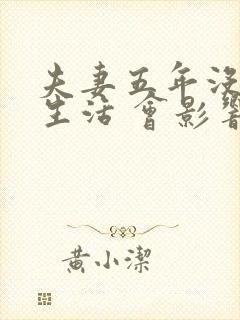 夫妻五年没
生活 會影響
黄小潔